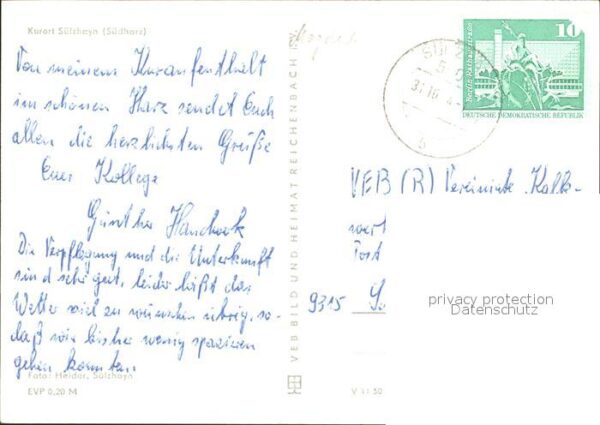 Kurort Sülzhayn (Südharz)
Von meinem Kuraufenthalt
im schönen Harz sendet Euch
allen die herzlichsten Grüße
Euer Kollege
Günther
Die Verpflegung und die Unterkunft
sind sehr gut, leider läßt das
Wetter viel zu wünschen übrig, so-
daß wir bisher wenig spazieren
gehen konnten.
Foto: Helder, Sülzhayn
EVP 0,20 M
VEB BILD UND HEIMAT REICHENBACH I. V.
V 11 50
SÜLZ
10
Berlin, Rathausstraße
DEUTSCHE DEMOKRATISCHE REPUBLIK
VEB (R) Vereininte Kalk-
werk
Post
9315
privacy protection
Datenschutz